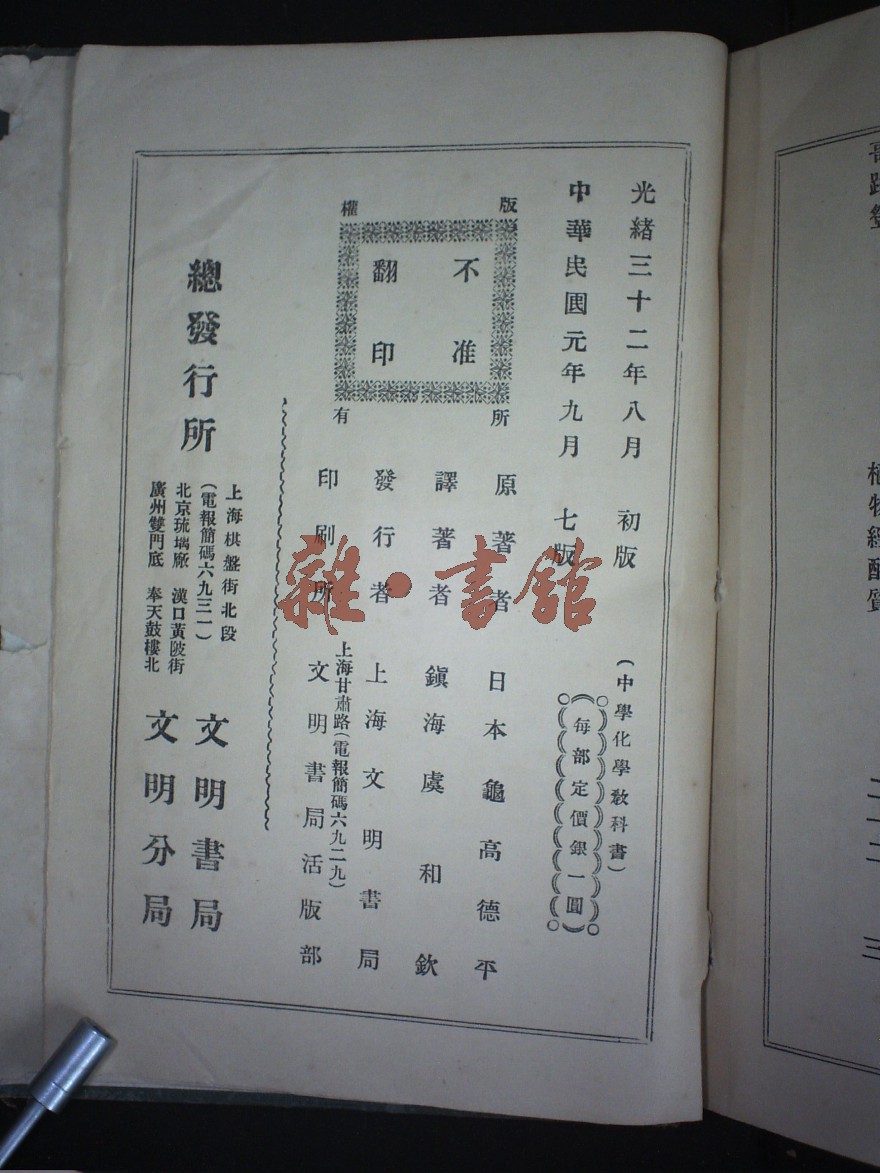 光緒三十二年八月　初版
中華民國元年九月　七版
（中學化學敎科書）
（每部定價銀一圓）
版權所有
不准
翻印
原著者　日本龜高德平
譯著者　鎭海虞和欽
發行者　上海文明書局
上海甘肅路（電報簡碼六九二九）
印刷所　文明書局活版部
總發行所
上海棋盤街北段
（電報簡碼六九三一）
文明書局
北京琉璃廠　漢口黃陂街
廣州雙門底　奉天鼓樓北
文明分局
雜·書館
植物經酸質
二十二
三